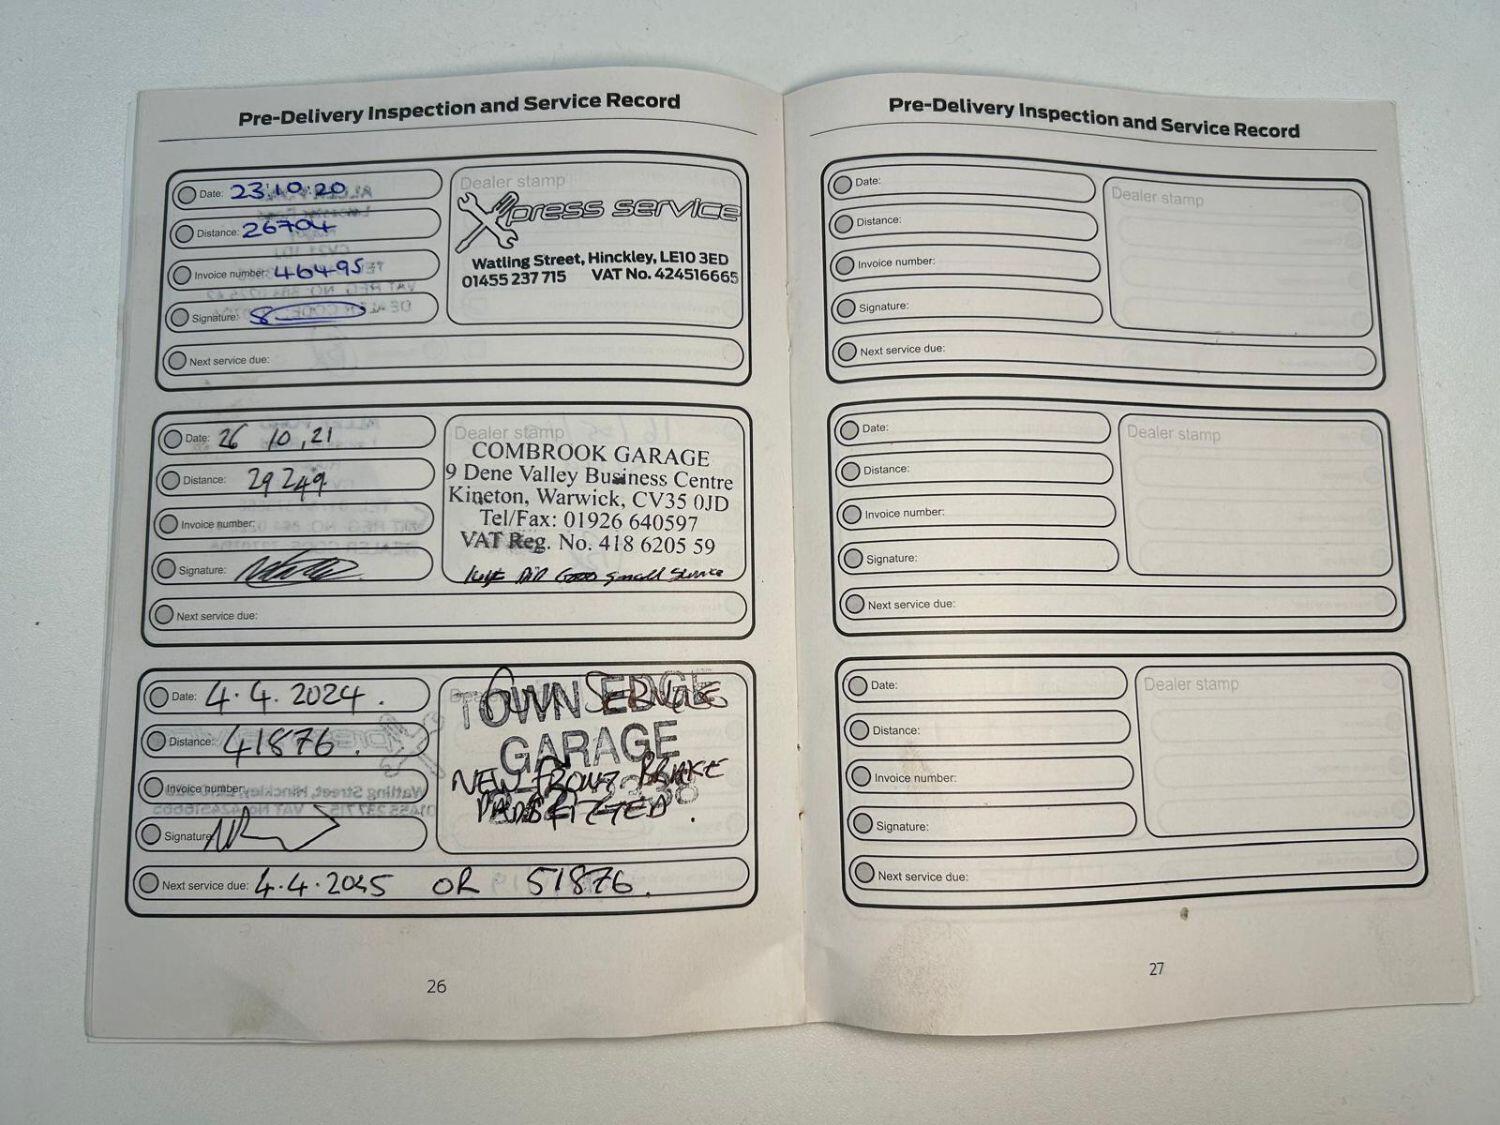 Pre-Delivery Inspection and Service Record
Date: 23.10.20
Distance: 26704
Invoice number: 46495
Signature:
Next service due:
Dealer stamp
Xpress service
Watling Street, Hinckley, LE10 3ED
01455 237 715 VAT No. 424516665
Date: 26 10, 21
Distance: 29249
Invoice number:
Signature:
Next service due:
Dealer stamp
COMBROOK GARAGE
9 Dene Valley Business Centre
Kineton, Warwick, CV35 0JD
Tel/Fax: 01926 640597
VAT Reg. No. 418 6205 59
small Service
Date: 4.4.2024.
Distance: 41876.
Invoice number:
Signature:
Next service due: 4.4.2025 OR 51876.
SERVICE
TOWN EDGE
GARAGE
NEW FRONT BRAKE
PADS FITTED.
26
Pre-Delivery Inspection and Service Record
Date:
Distance:
Invoice number:
Signature:
Next service due:
Dealer stamp
Date:
Distance:
Invoice number:
Signature:
Next service due:
Dealer stamp
Date:
Distance:
Invoice number:
Signature:
Next service due:
Dealer stamp
27